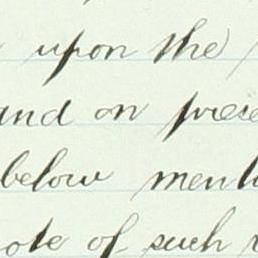 upon the
and on prese
below ment
ote of such